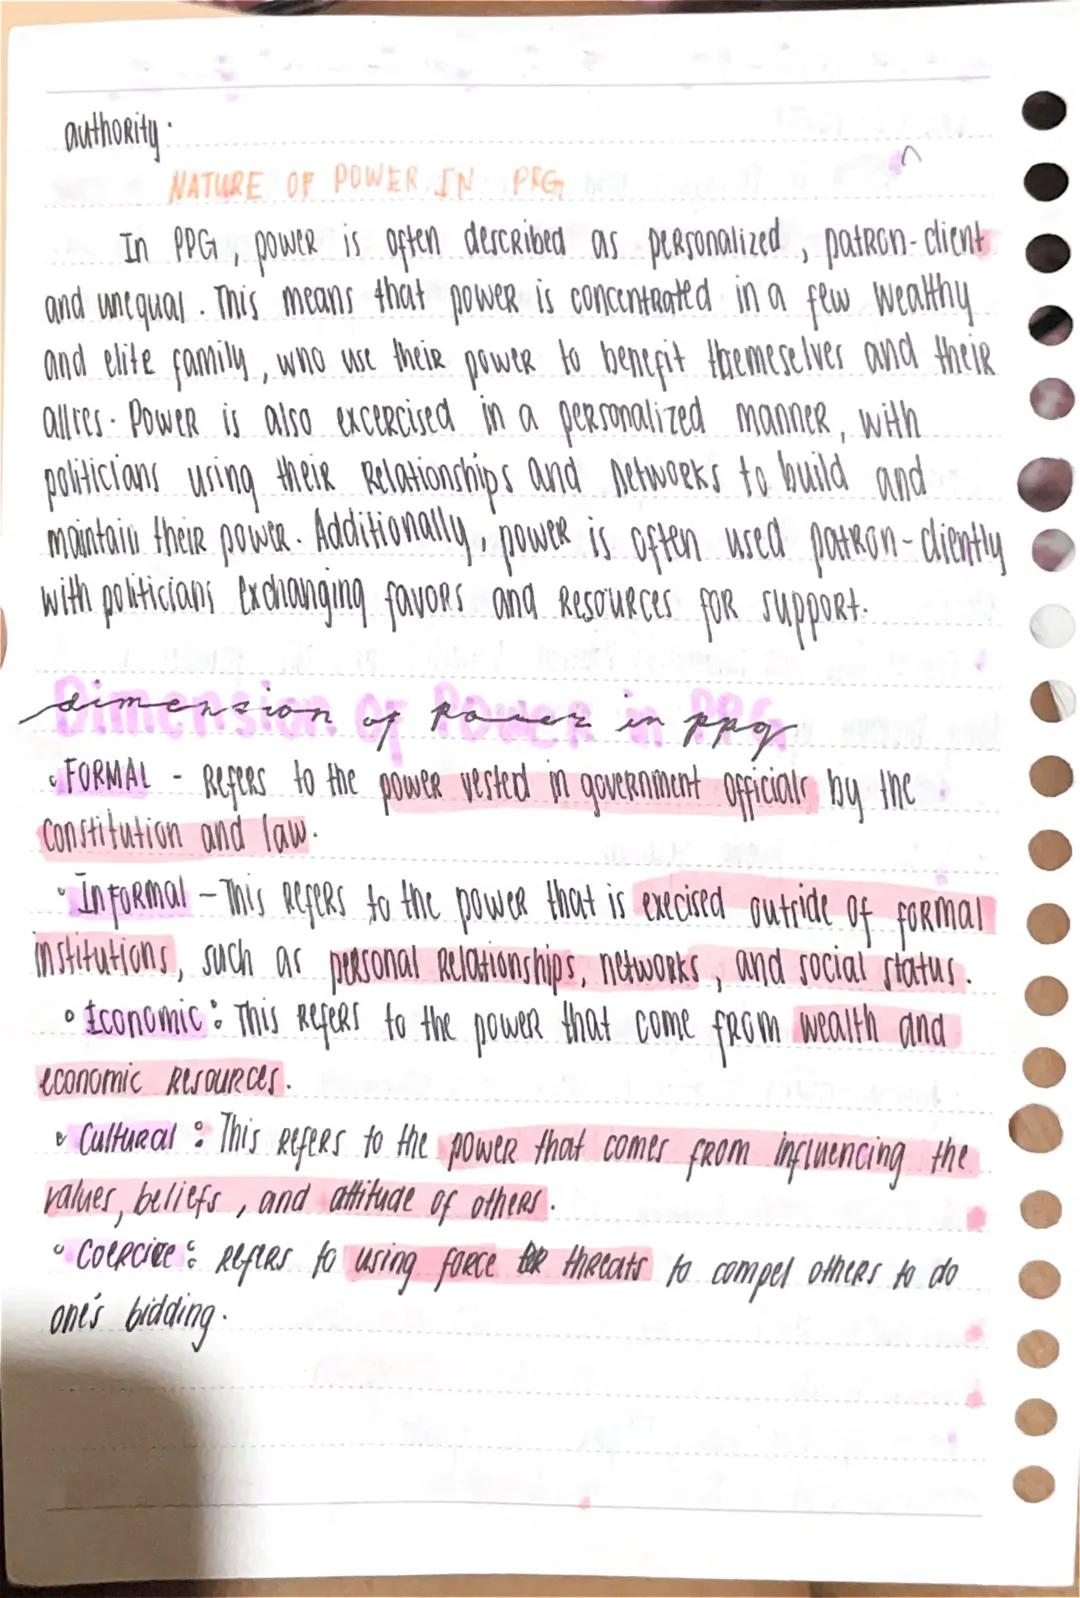 authority.
NATURE OF POWER IN PPG
In PPG, power is often described as personalized, patron-client
and unequal. This means that power is concentrated in a few wealthy
and elite family, who use their power to benefit themeselves and their
allies. Power is also excercised in a personalized manner, with
politicians using their Relationships and networks to build and
maintain their power. Additionally, power is often used patron-cliently
with politicians exchanging favors and resources for support.
Dimension of Power in PPG
dimension of power in ppg
• FORMAL - Refers to the power vested in government officials by the
constitution and law.
• Informal - This Refers to the power that is execised outside of formal
institutions, such as personal Relationships, networks, and social status.
• Economic: This Refers to the power that come from wealth and
economic resources.
• Cultural: This Refers to the power that comes from influencing the
values, beliefs, and attitude of others.
• Coercive: Refers to using force or threats to compel others to do
one's bidding.